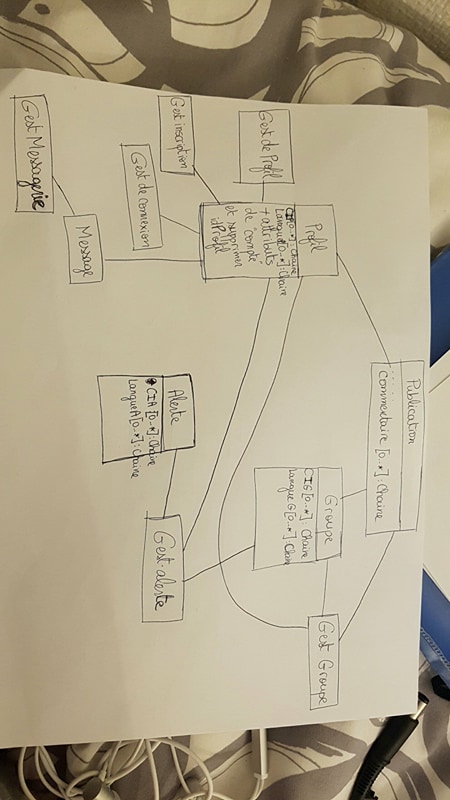 Publication
.....
Commentaire [0..*] : Chaine
Profil
CIP[0..*] : Chaine
Langue[0..*] : Chaine
+ attributs
de "compte"
et supprimer
idProfil
Groupe
CIG[0..*] : Chaine
Langue G[0..*] : Chaine
Gest Groupe
Gest de Profil
Gest inscription
Gest de connexion
Alerte
CIA [0..*] : Chaine
LangueA[0..*] : Chaine
Gest-alerte
Message
Gest Messagerie